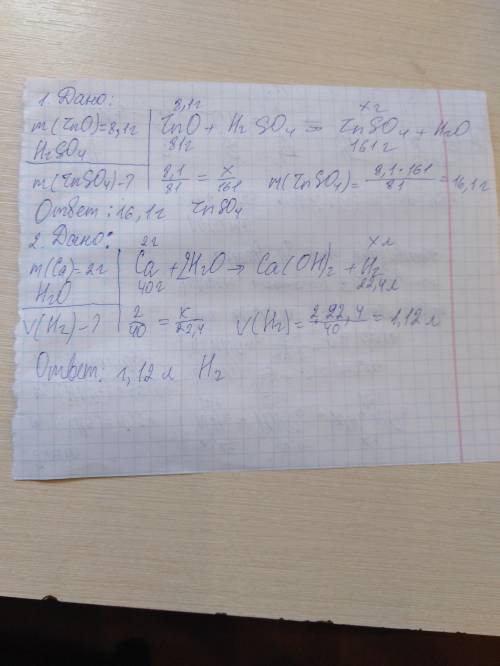 1. Дано:
m(ZnO)=8,1г
H2SO4
m(ZnSO4)-?
8,1г xг
ZnO + H2SO4 = ZnSO4 + H2O
81г 161г
8,1/81 = x/161 m(ZnSO4)= 8,1·161/81 = 16,1г
Ответ: 16,1г ZnSO4
2. Дано:
m(Ca)=2г
H2O
V(H2)-?
2г xл
Ca + 2H2O → Ca(OH)2 + H2
40г 22,4л
2/40 = x/22,4 V(H2)= 2·22,4/40 = 1,12л
Ответ: 1,12л H2